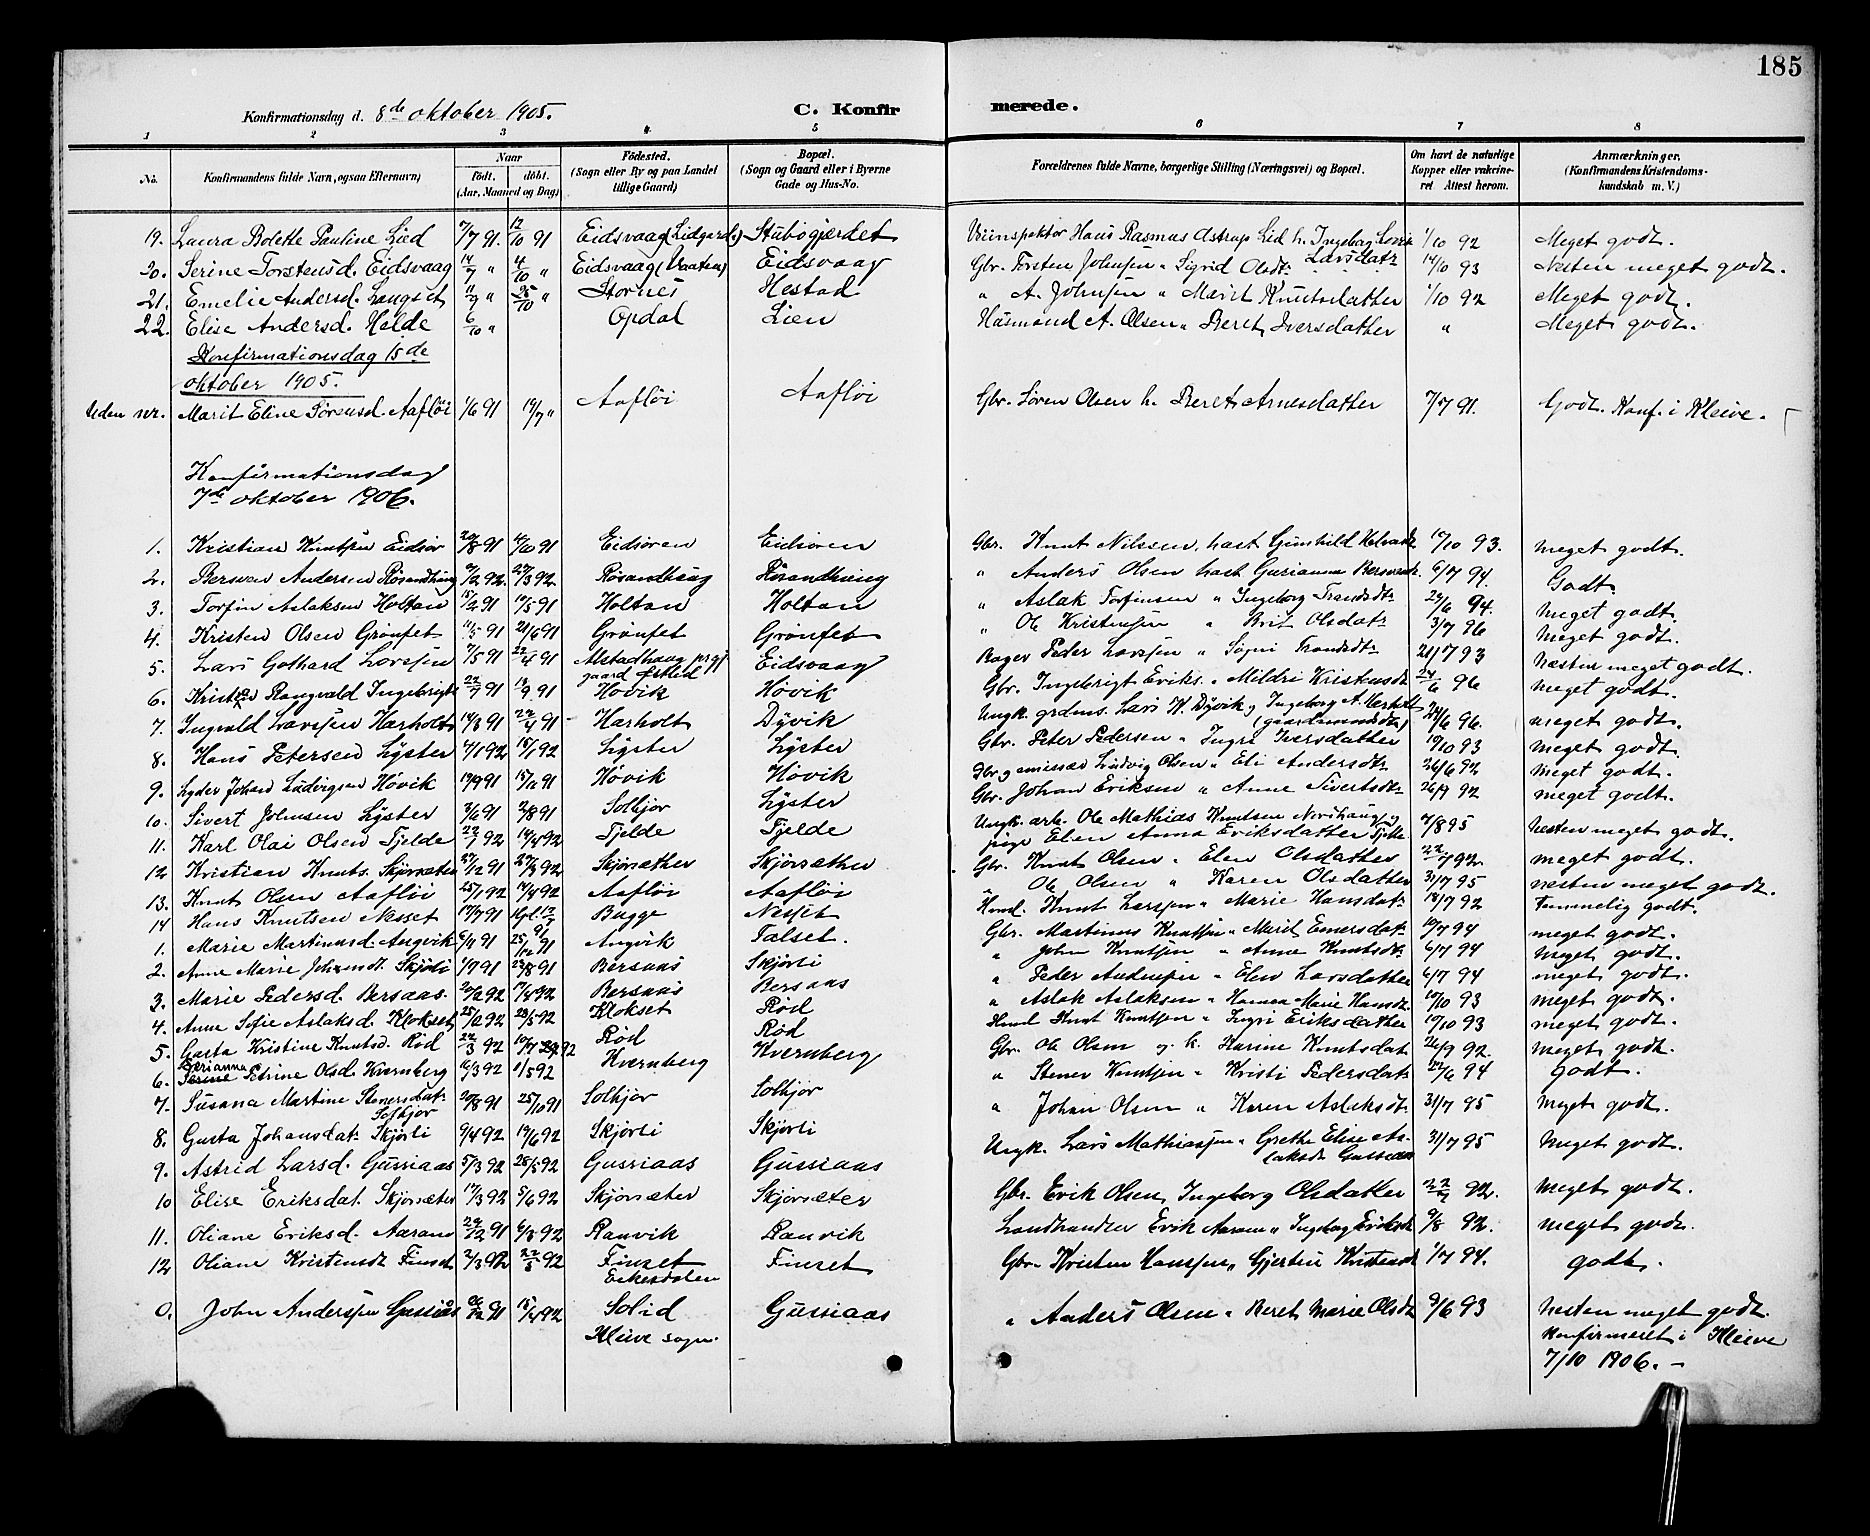 185
Konfirmationsdag d. 8de oktober 1905. C. Konfirmerede.
1 2 3 4 5 6 7 8
No. Konfirmandens fulde Navn, ogsaa Efternavn) Naar Födt. döbt. (Aar, Maaned og Dag) Födested. (Sogn eller By og paa Landet tillige Gaard) Bopæl. (Sogn og Gaard eller i Byerne Gade og Hus-No. Forældrenes fulde Navne, borgerlige Stilling (Næringsvei) og Bopæl. Om havt de naturlige Kopper eller vakcineret Attest herom. Anmærkninger. (Konfirmandens Kristendomskundskab m. V.)
19. Laura Bolette Pauline Lied 7/7 91. 12/10 91 Eidsvaag (Lidgerd.) Stubögjerdet Hans Rasmus Astrup Lid h. Ingeborg Lovise Larsdatr 1/10 92 Meget godt.
20. Serine Torstensd. Eidsvaag 14/9 " 4/10 " Eidsvaag (Vaaten) Eidsvaag Gbr. Torsten Johnsen " Sigrid Olsdt. 14/10 93 Næsten meget godt.
21. Emelie Andersd. Langset 11/9 " 25/10 " Stornes Hestad " A. Johnsen " Marit Knutsdatter 1/10 92 Meget godt.
22. Elise Andersd. Helde 6/10 " Opdal Lien Husmand A. Olsen " Beret Iversdatter " Meget godt.
Konfirmationsdag 15de
oktober 1905.
Uden nr. Marit Eline Sörensd. Aaflöi 1/6 91 19/7 " Aaflöi Aaflöi Gbr. Sören Olsen h. Beret Arnesdatter 7/7 91. Godt. Konf. i Kleive.
Konfirmationsdag
7de oktober 1906.
1. Kristian Knutsen Eidsör 20/8 91 4/10 91 Eidsören Eidsören Gbr. Knut Nilssen, hust Gunhild 10/10 93. meget godt.
2. Bersvend Andersen Rösandhaug 2/2 92. 27/3 92. Rösandhaug Rösandhaug " Anders Olsen hust Gurianna 6/7 94. Godt.
3. Torfin Aslaksen Holtan 15/2 91 10/5 91 Holtan Holtan " Aslak Torfinsen " Ingeborg Trondsdt. 24/6 94. meget godt.
4. Kristen Olsen Grönset 11/5 91 21/6 91 Grönset Grönset " Ole Kristensen " Brit Olsdatr 3/7 96 Meget godt.
5. Lars Gothard Larssen 7/5 91 22/4 91 Alstadhaug prgj gaard Eidsvaag Bager Peder Larssen " Signi Trondsdt. 21/7 93 Næsten meget godt.
6. Kristen Rangvald Ingebrigts 22/7 91 13/9 91 Hövik Hövik Gbr. Ingebrigt Eriks. " Mildri Kristensdt 24/6 96 meget godt.
7. Ingvald Larssen Harholt 14/3 91 22/4 91 Harholt Dyvik Ungk. grdms. Lars K. Dyvik, Ingeborg A. Harholt (gaardmandsdtr) 24/6 96. meget godt.
8. Hans Petersen Lyster 4/1 92 15/1 92 Lyster Lyster Gbr. Peter Pedersen " Ingri Iversdatter 10/10 93 meget godt.
9. Lyder Johan Ludvigsen Hövik 19/9 91 15/11 91 Hövik Hövik Gbr. emissær Ludvig Olsen " Eli Andersdt. 26/6 92 meget godt.
10. Sivert Johnsen Lyster 3/6 91 2/8 91 Solhjor Lyster Gbr. Johan Eriksen " Anne Sivertsdt. 26/9 92 meget godt.
11. Karl Olai Olsen Tjelde 22/2 92 14/4 92 Tjelde Tjelde Ungk. arb. Ole Mathias Knutsen Nordhaug, pige Elen Anna Eriksdatter 7/8 95 Næsten meget godt.
12 Kristian Knuts. Skjörsæter 27/12 91 27/3 92 Skjörsæther Skjörsæther Gbr. Knut Olsen " Elen Olsdatter 22/7 92. meget godt.
13. Knut Olsen Aaflöi 25/1 92 14/4 92 Aaflöi Aaflöi " Ole Olsen " Karen Olsdatter 31/7 95 næsten meget godt.
14 Hans Knutsen Nesset 17/7 91 Bugge Nesset Husd. Knut Larssen " Marie Hansdatr 18/7 92 Temmelig godt.
1. Marie Martinusd. Angvik 6/11 91 25/12 91 Angvik Talset. Gbr. Martinus Knutsen " Marit Einersdatr 10/7 94 meget godt.
2. Anne Marie Johnsdt. Skjörli 1/7 91 23/8 91 Bersaas Skjörli " John Knutsen " Anne Knutsdt. 6/7 94 Meget godt.
3. Marie Pedersd. Bersaas. 20/2 92 17/4 92 Bersaas Bersaas " Peder Andersen " Elen Larsdatter 6/7 94 meget godt.
4. Anne Sofie Aslaksd. Klokset 25/2 92 23/5 92 Klokset Röd " Aslak Aslaksen " Hanna Marie Hansdt. 10/10 93 meget godt.
5. Gusta Kristine Knutsd. Röd 22/3 92 10/7 92 Röd Röd Husd Knut Knutsen " Ingri Eriksdatter 10/10 93 meget godt.
6. Gerianna Petrine Olsd. Kvernberg 16/3 92 1/5 92 Kvernberg Kvernberg Gbr. Ole Olsen og h. Karine Knutsdat 26/9 92. meget godt.
7. Susana Martine Stenersdatr Solhjor 20/8 91 25/10 91 Solhjor Solhjor " Stener Knutsen " Kristi Pedersdatr 24/6 94 Godt.
8. Gusta Johansdatr Skjörli 9/4 92 19/6 92 Skjörli Skjörli " Johan Olsen " Karen Aslaksdt. 31/7 95 Meget godt.
9. Astrid Larsd. Gussiaas 5/3 92 28/5 92 Gussiaas Gussiaas Ungk. Lars Mathiassen " Grethe Elise Aslaksdt Gussiaas 31/7 95 Meget godt.
10 Elise Eriksdat. Skjörsæter 17/3 92 5/6 92 Skjörsæter Skjörsæter Gbr. Erik Olsen, Ingeborg Olsdatter 22/7 92. Meget godt.
11. Oliane Eriksd. Aaram 24/12 91 6/3 92 Ranvik Ranvik Landhandler Erik Aaram " Ingeborg Eriksdt 9/8 92. meget godt.
12 Oliane Kristensdt Finset 2/3 92 22/5 92 Finset Eikesdalen Finset Gbr. Kristen Hanssen " Gjertrü Kristensdt 1/7 94. godt.
0. John Anderssen Gussiås 26/12 91 18/4 92 Solid Kleive sogn. Gussiaas " Anders Olsen " Beret Marie Olsdt 9/6 93 Næsten meget godt. Konfirmeret i Kleive 7/10 1906. -